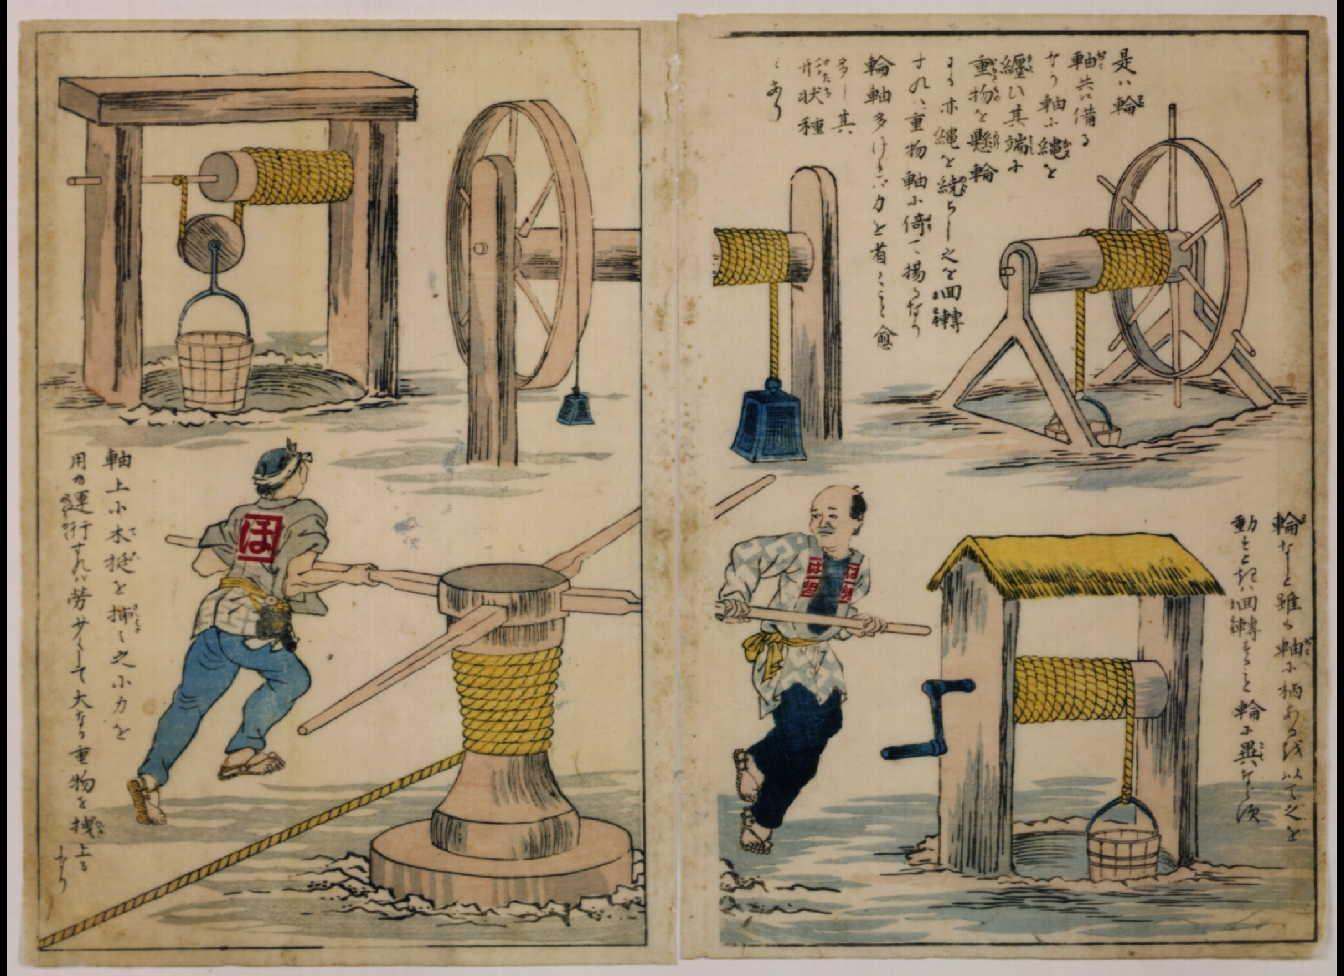 是ハ輪
軸共ニ備る
なり軸に縄を
纏ひ其端に
重物を懸輪
にも亦縄を繞らし之を回轉
すれハ重物軸に倚て揚るなり
輪軸多けれハ力を省くこと愈
多し其
形状種
々あり
輪なしと雖も軸に柄あるを以て之を
動すときハ回轉すること輪に異ならす
軸上に木挺を挿し之小力を
用ゐ運行すれハ労少くして大なる重物を拽上る
なり
ほ